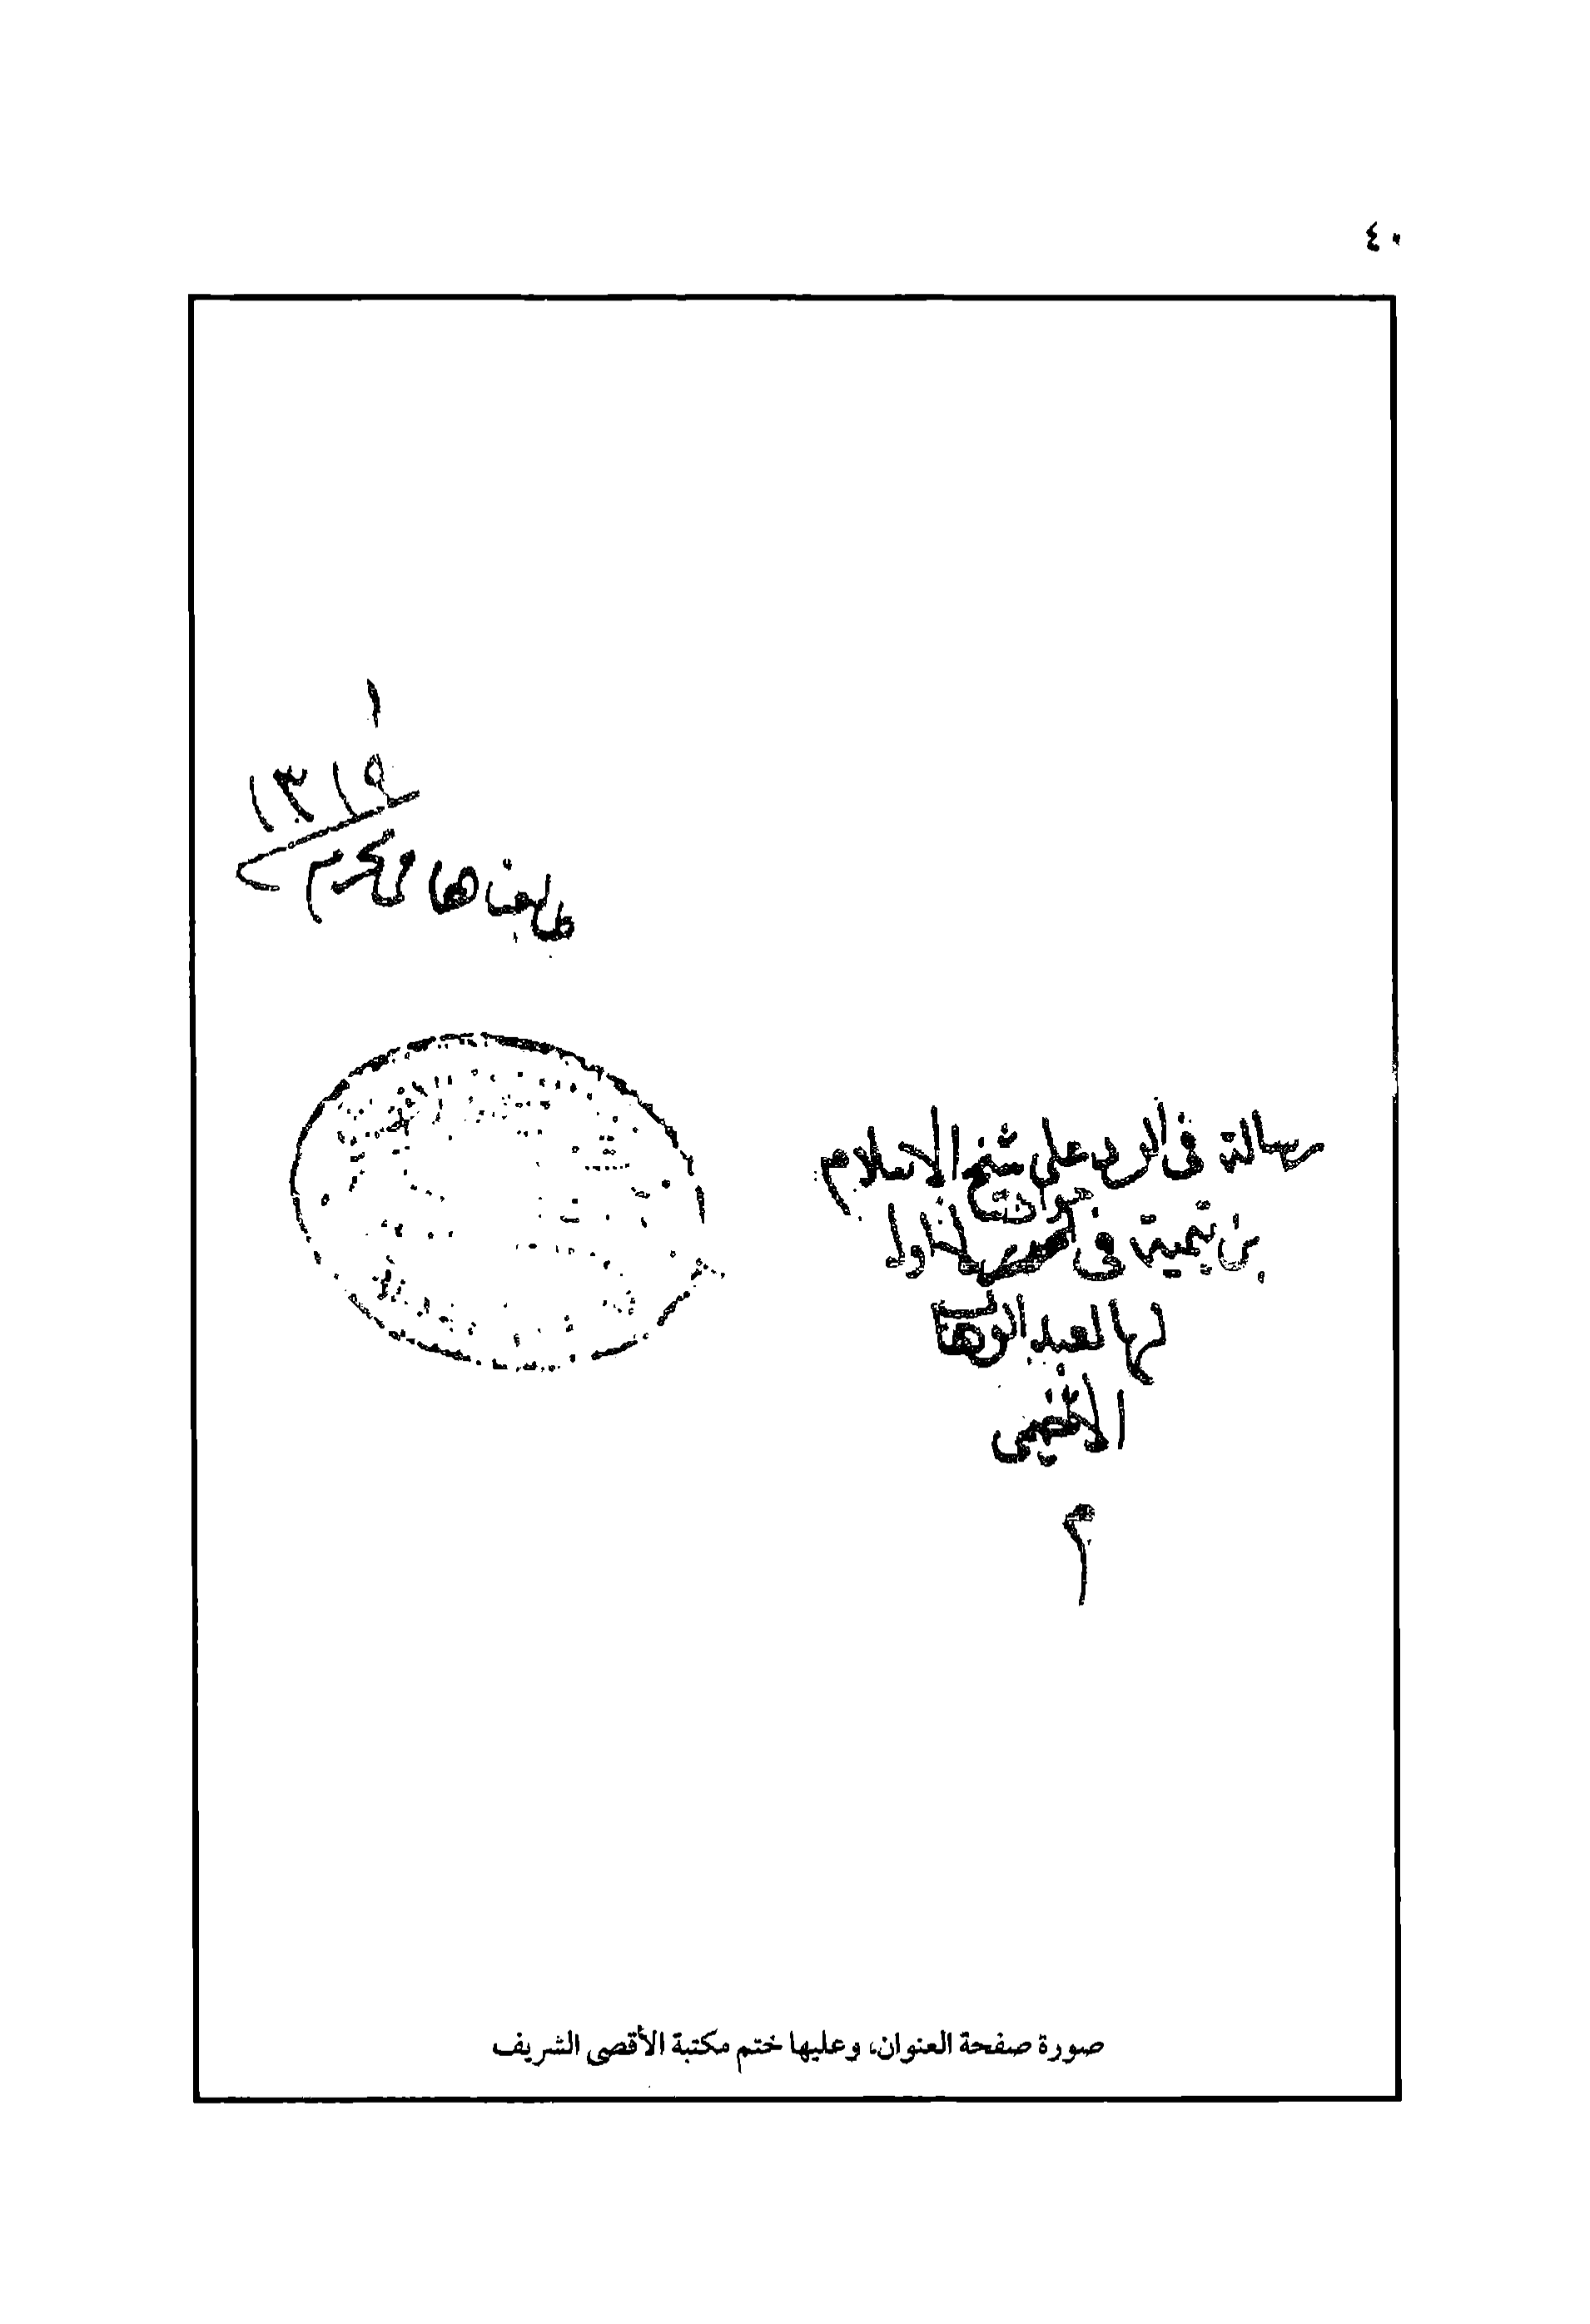 ٤٠
١
١٣١٩
طالعناها في محرم
رسالة في الرد على شيخ الاسلام
بن تيمية في حوادث لا اول
لها لعبد الوهاب
الاخميمي
م
صورة صفحة العنوان، وعليها ختم مكتبة الأقصى الشريف